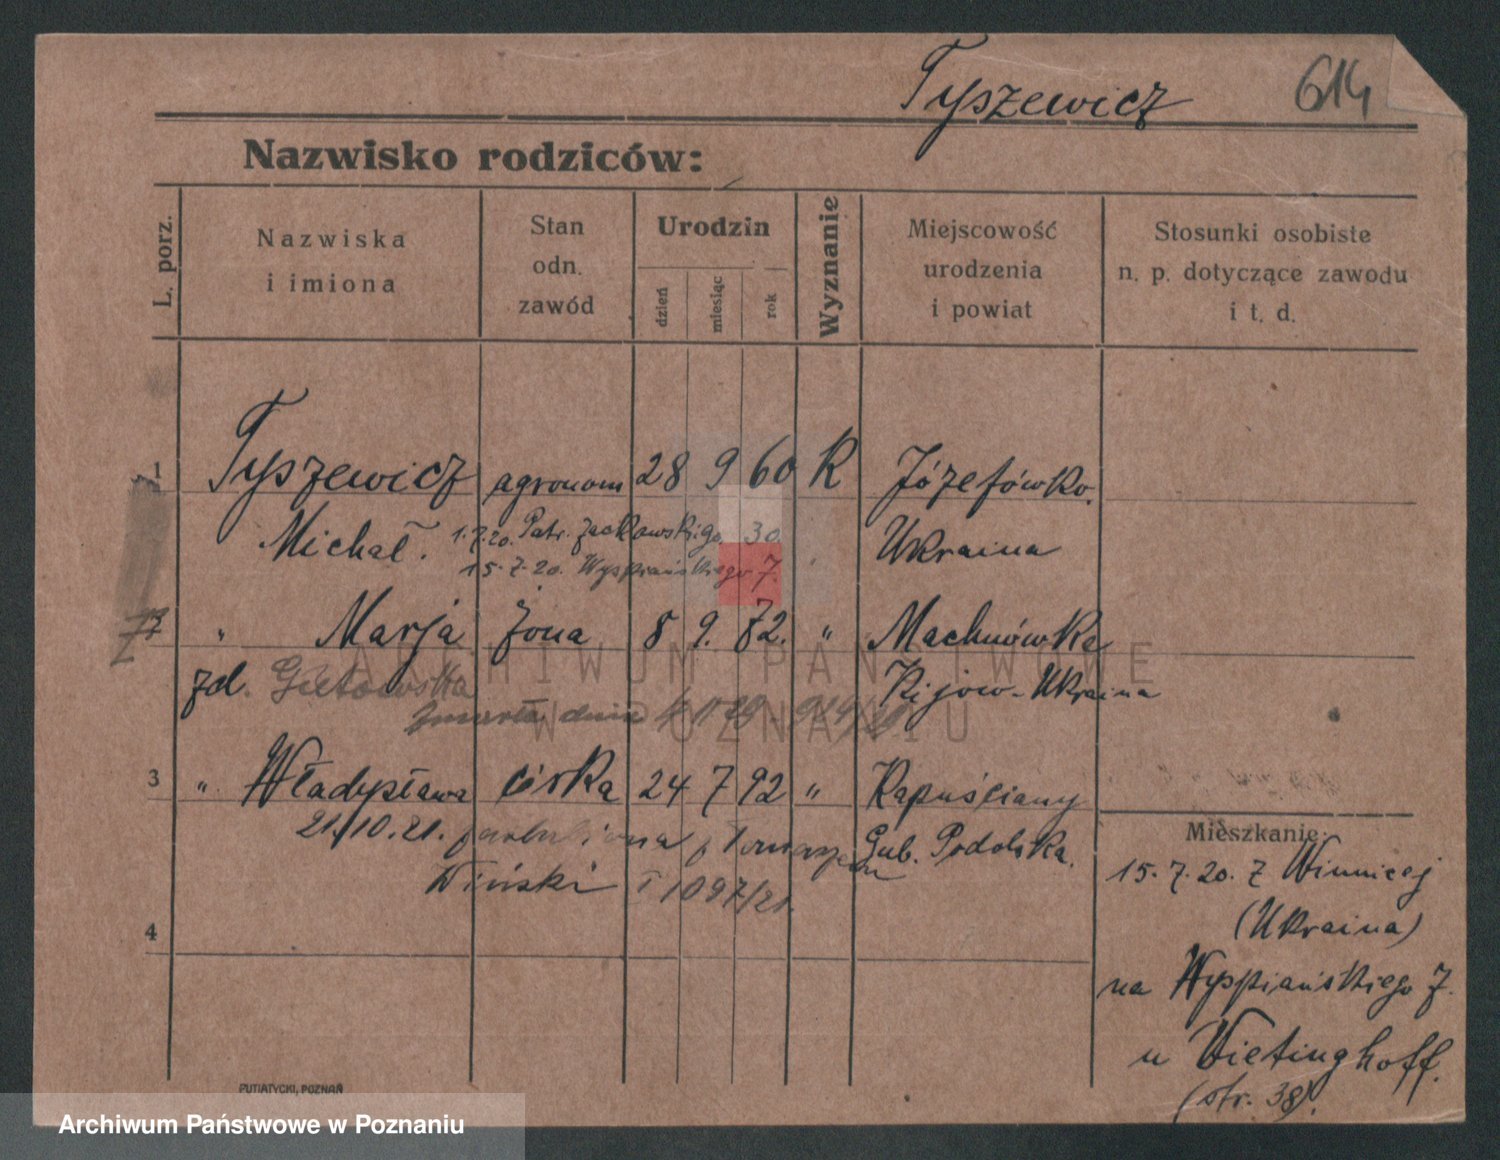 Tyszewicz
614
Nazwisko rodziców:
L. porz.
Nazwiska
i imiona
Stan
odn.
zawód
Urodzin
dzień
miesiąc
rok
Wyznanie
Miejscowość
urodzenia
i powiat
Stosunki osobiste
n. p. dotyczące zawodu
i t. d.
1 Tyszewicz agronom 28 9 60 R Józefówka.
Michał. 1.7.20. Patr. Jackowskiego 30. Ukraina
15.7.20. Wyspiańskiego 7.
2 " Marja żona 8 9. 72. " Machnówka
zd. Kijow-Ukraina
zmarła dnia
3 " Władysława córka 24 7 92 " Kapuściany
21.10.21. Gub. Podolska.
1097/21.
4
Mieszkanie:
15.7.20. z Winnicej
(Ukraina)
na Wyspiańskiego 7.
u Wietinghoff.
(str. 38).
PUTIATYCKI, POZNAŃ
ARCHIWUM PAŃSTWOWE
W POZNANIU
Archiwum Państwowe w Poznaniu